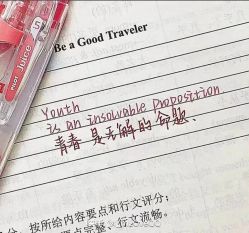 Juice
Be a Good Traveler
Youth
is an insolvable proposition
青春是无解的命题、
按所给内容要点和行文评分;
要点完整、行文流畅。